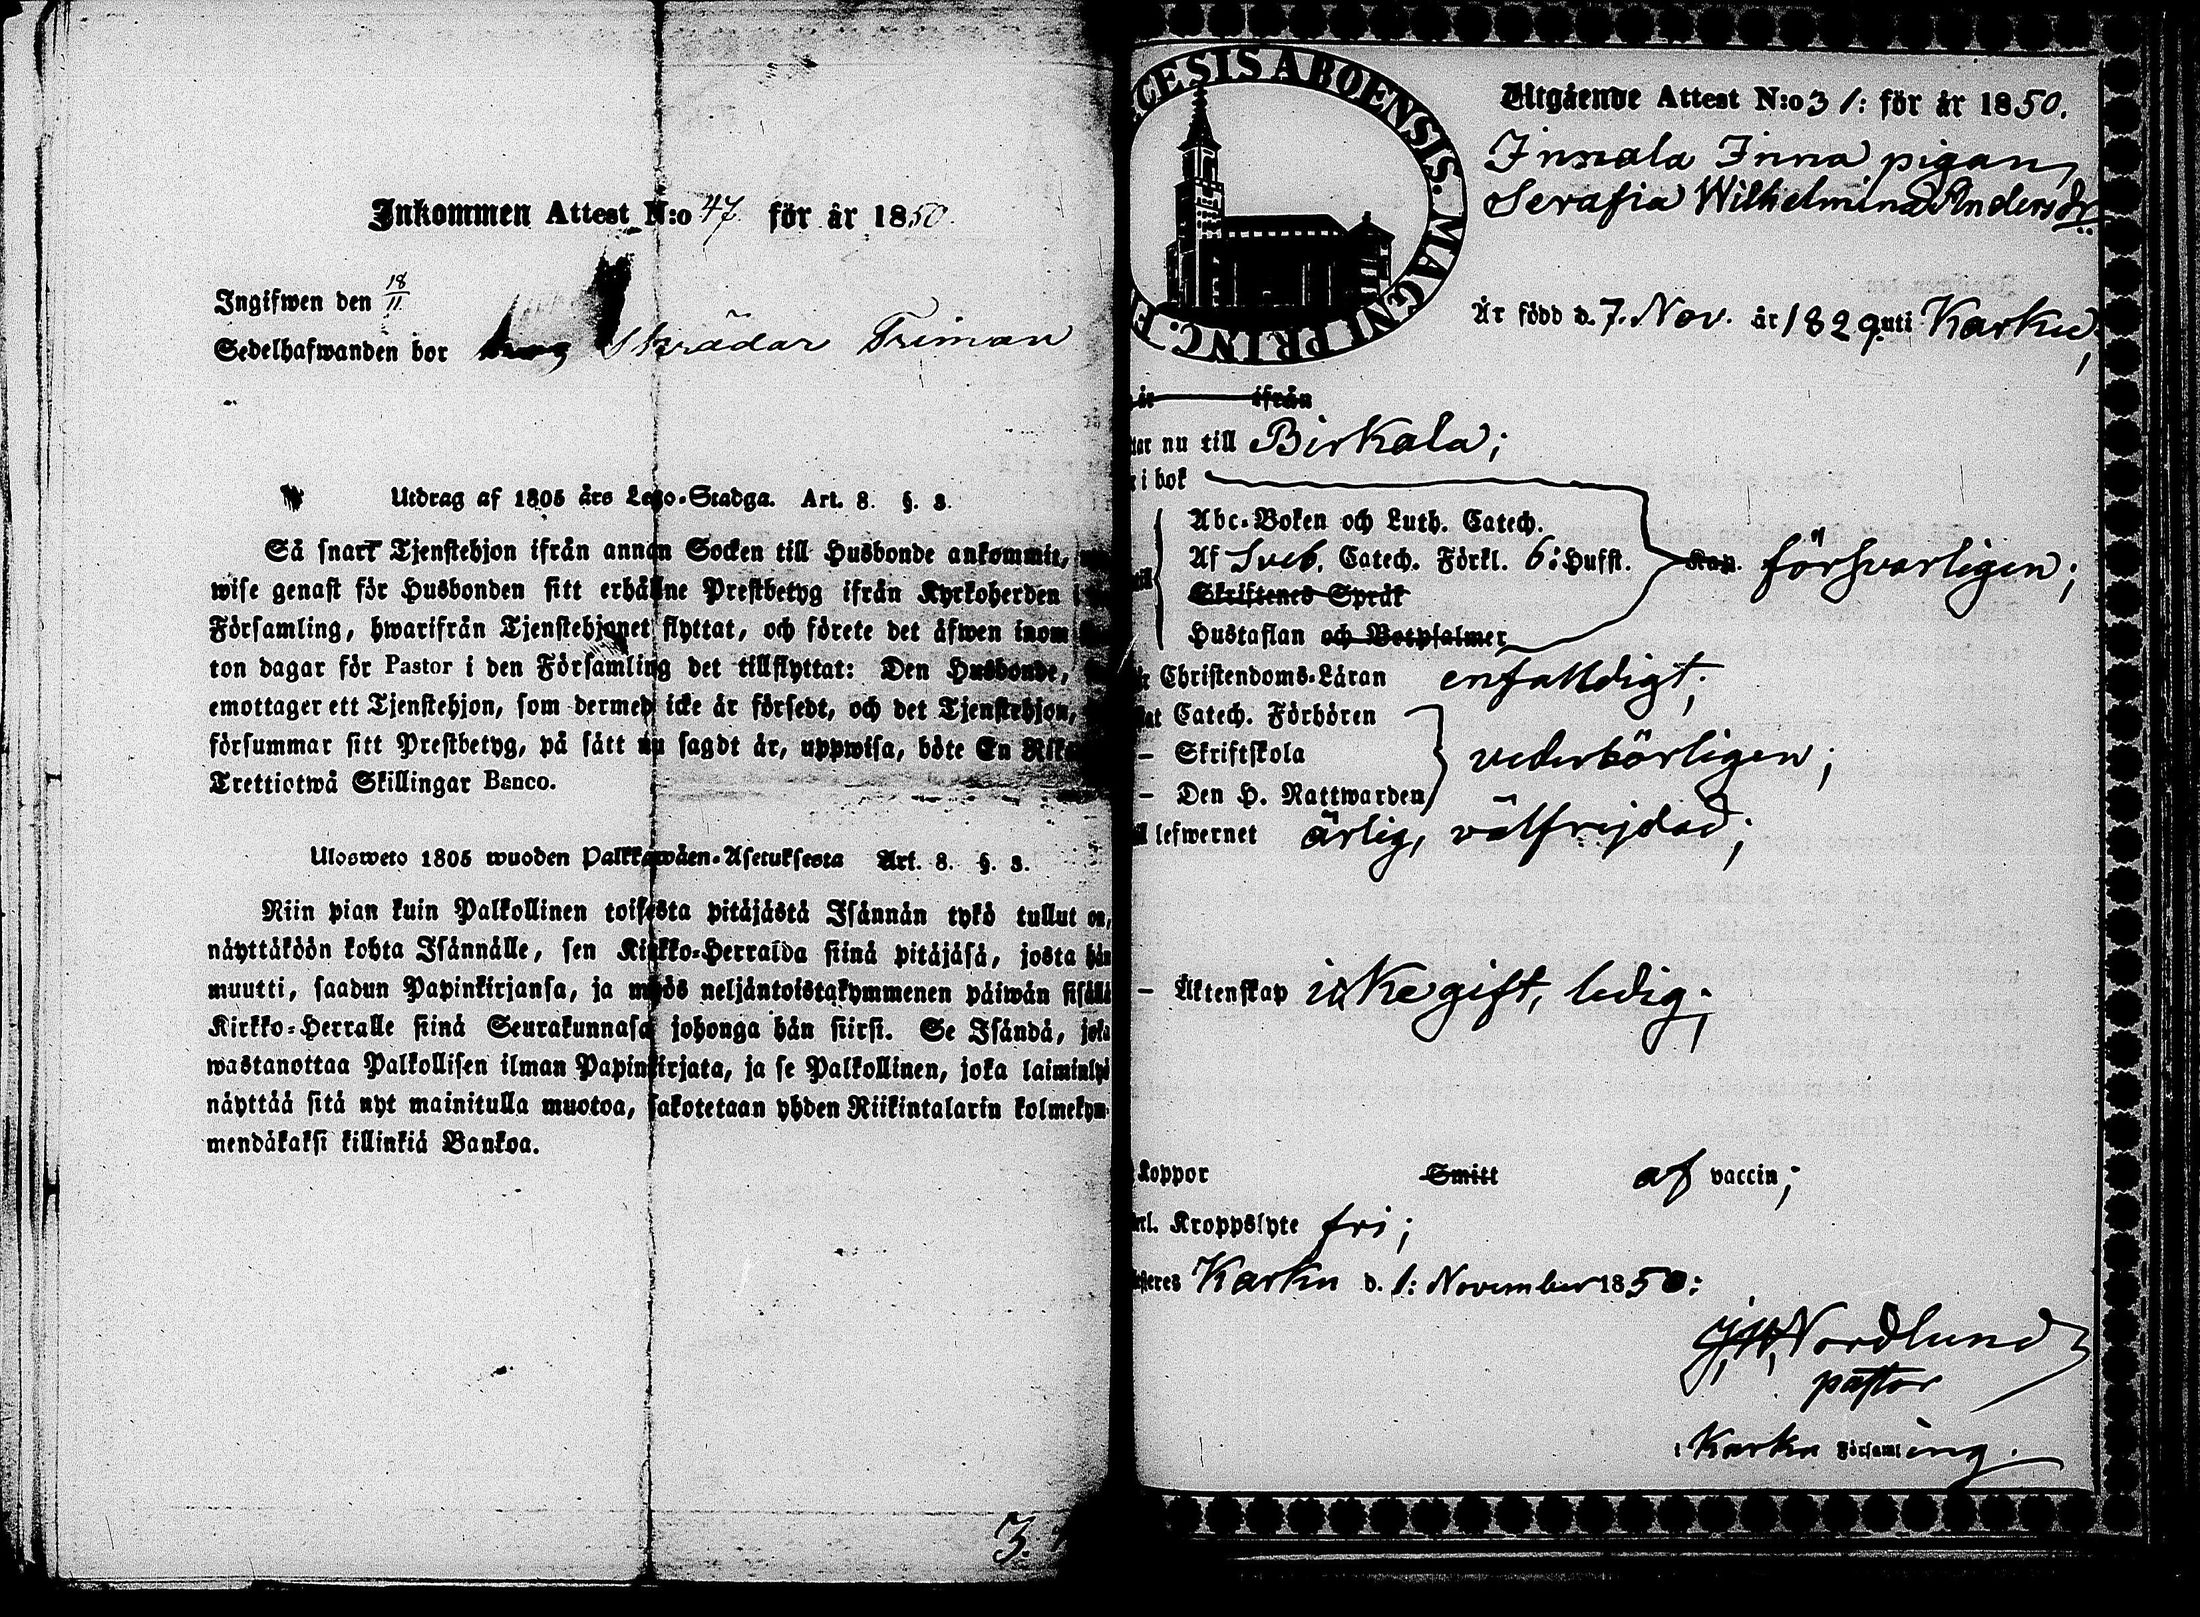 Inkommen Attest N:o 47 för år 1850.
Ingifwen den 18/11
Sedelhafwanden bor Skrädar Friman
Utdrag af 1805 års Lego-Stadga. Art. 8. §. 3.
Så snart Tjenstehjon ifrån annan Socken till Husbonde ankommit,
wise genast för Husbonden sitt erhållne Prestbetyg ifrån Kyrkoherden i
Församling, hwarifrån Tjenstehjonet flyttat, och förete det äfwen inom
ton dagar för Pastor i den Församling det tillflyttat: Den Husbonde,
emottager ett Tjenstehjon, som dermed icke är försedt, och det Tjenstehjon,
försummar sitt Prestbetyg, på sätt nu sagdt är, uppwisa, böte En Riks
Trettiotwå Skillingar Banco.
Ulosweto 1805 wuoden Palkkawäen-Asetuksesta Art. 8. §. 3.
Niin pian kuin Palkollinen toisesta pitäjästä Isännän tykö tullut on,
näyttäköön kohta Isännälle, sen Kirkko-Herralda siinä pitäjäsä, josta hän
muutti, saadun Papinkirjansa, ja myös neljäntoistakymmenen päiwän sisällä
Kirkko-Herralle siinä Seurakunnasa johonga hän siirsi. Se Isändä, joka
wastanottaa Palkollisen ilman Papinkirjata, ja se Palkollinen, joka laiminlyö
näyttää sitä nyt mainitulla muotoa, sakotetaan yhden Riikintalarin kolmekym-
mendäkaksi killinkiä Bankoa.
3.
CESIS ABOENSIS. MAGNI PRINC.
Utgående Attest N:o 31: för år 1850.
Inmala Inna pigan,
Serafia Wilhelmina Andersdr
Är född d. 7. Nov. år 1829. uti Karku,
är ifrån
tar nu till Birkala;
i bok
Abc-Boken och Luth. Catech.
Af Sveb. Catech. Förkl. 6: Hufst. Kap. försvarligen;
Skriftenes Språk
Hustaflan och Botpsalmer
Christendoms-Läran enfalldigt;
at Catech. Förhören
– Skriftskola vederbörligen;
– Den H. Nattwarden
lefwernet ärlig, välfrejdad;
– Äktenskap icke gift, ledig;
Koppor Smitt af vaccin;
Kroppslyte fri;
Karku d. 1: November 1850:
J. W. Nordlund
pastor
i Karku Församling.